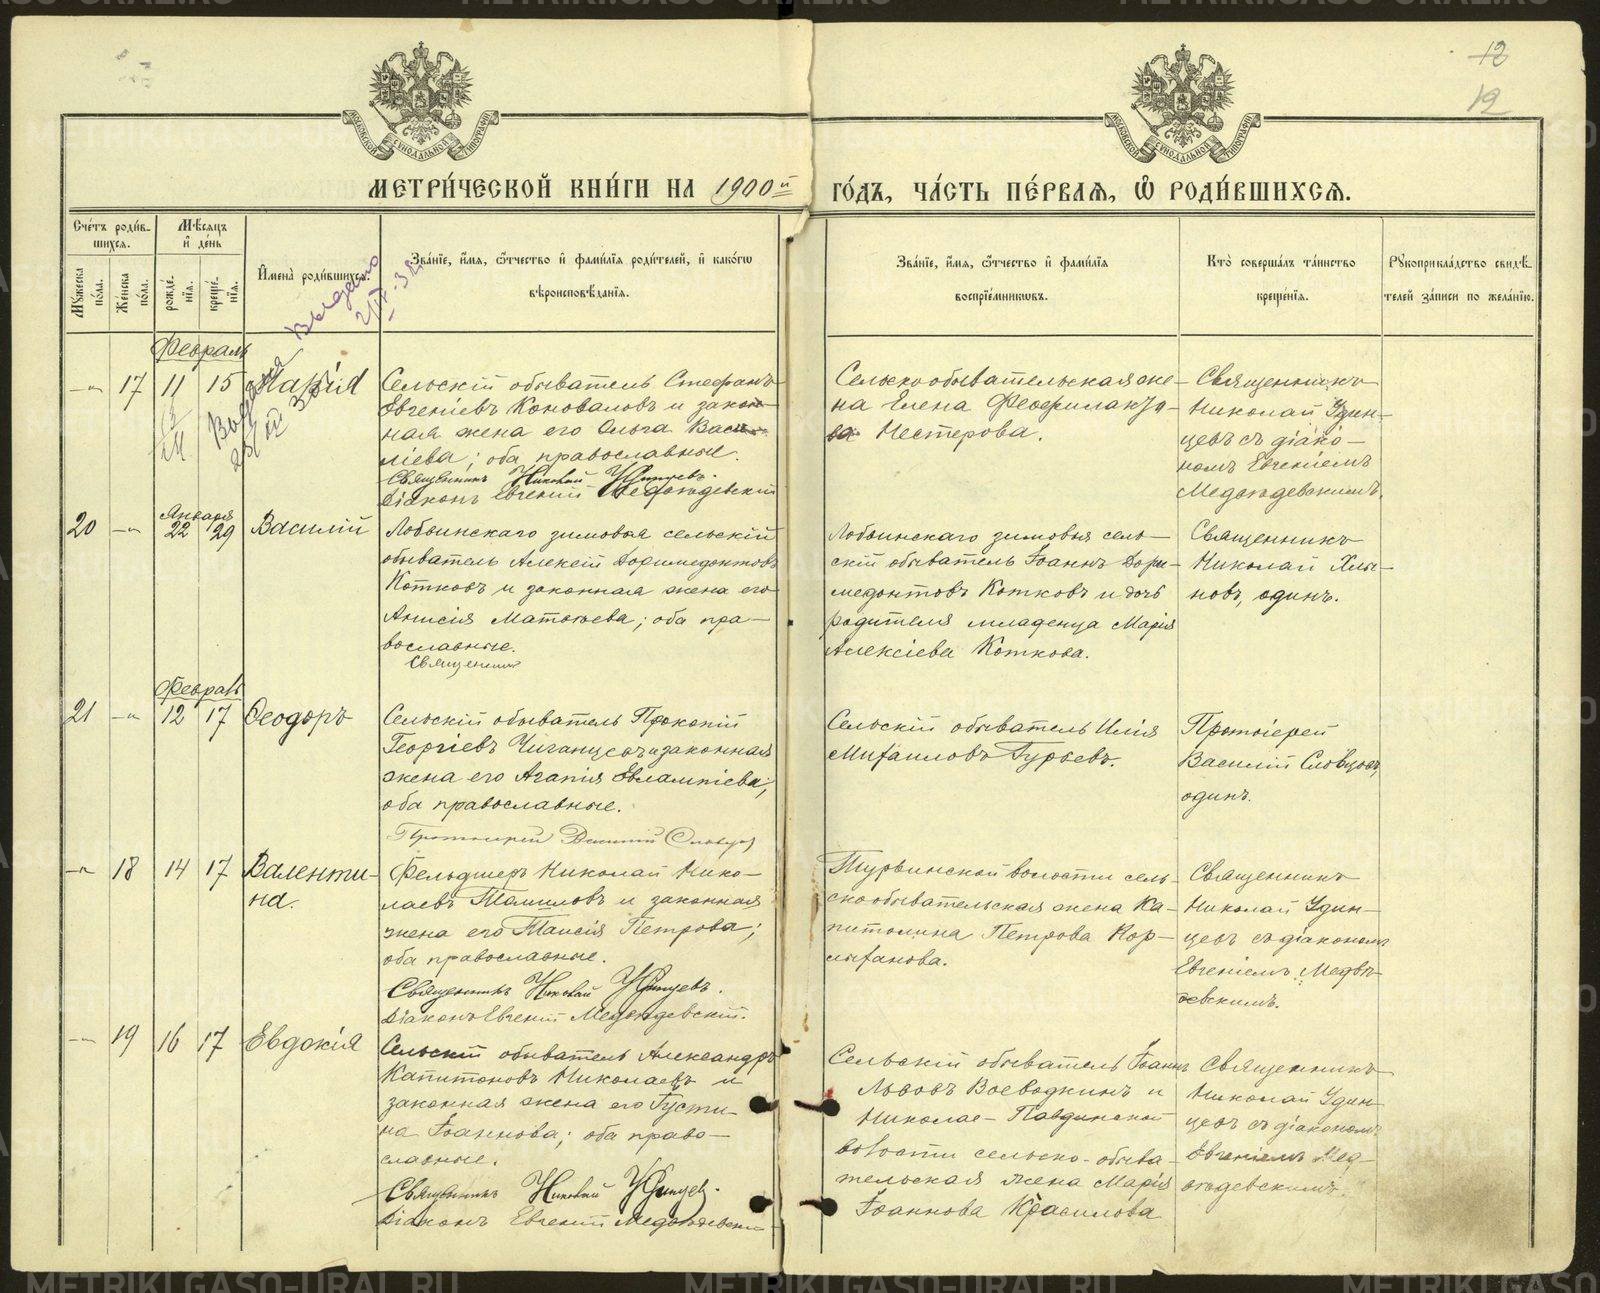 12
12
МЕТРИ́ЧЕСКОЙ КНИ́ГИ НА 1900й
ГО́ДЪ, ЧА́СТЬ ПЕ́РВАѦ, Ѡ҆ РОДИ́ВШИХСѦ.
Сче́тъ роди́в-
шихсѧ.
Мꙋжеска по́ла.
Женска по́ла.
Мѣ́сѧцъ
и҆ де́нь
рожде́-
нїѧ.
креще́-
нїѧ.
И҆мена̀ роди́вшихсѧ.
Зва́нїе, и҆́мѧ, ѻ҆́тчество и҆ фами́лїѧ роди́телей, и҆ како́гѡ
вѣроисповѣ́данїѧ.
Зва́нїе, и҆́мѧ, ѻ҆́тчество и҆ фами́лїѧ
воспрїе́мникѡвъ.
Кто̀ соверша́лъ та́инство
креще́нїѧ.
Рꙋкоприкла́дство свидѣ́-
телей за́писи по жела́нїю.
Февраль
—„— 17 11 15 Марія
Сельскій обыватель Стефанъ
Евгеніевъ Коноваловъ и закон-
ная жена его Ольга Васи-
ліева; оба православные.
Священникъ Николай Удинцевъ.
Діаконъ Евгеній Медвѣдевскій
Сельскообывательская же-
на Елена Феофилакто-
ва Нестерова.
Священникъ
Николай Удин-
цевъ съ діако-
номъ Евгеніемъ
Медвѣдевскимъ.
Января
20 —„— 22 29 Василій
Лобвинскаго зимовья сельскій
обыватель Алексій Доримедонтовъ
Котковъ и законная жена его
Анисія Матѳеева; оба пра-
вославные.
Священникъ
Лобвинскаго зимовья сель-
скій обыватель Іоаннъ Дори-
медонтовъ Котковъ и дочь
родителя младенца Марія
Алексіева Коткова.
Священникъ
Николай Хлы-
новъ, одинъ.
Февраль
21 —„— 12 17 Ѳеодоръ
Сельскій обыватель Прокопій
Георгіевъ Чиганцевъ и законная
жена его Агапія Евлампіева;
оба православные.
Протоіерей Василій Словцовъ
Сельскій обыватель Илія
Михаиловъ Гурьевъ.
Протоіерей
Василій Словцовъ,
одинъ.
—„— 18 14 17 Валенти-
на.
Фельдшеръ Николай Нико-
лаевъ Томиловъ и законная
жена его Таисія Петрова;
оба православные.
Священникъ Николай Удинцевъ.
Діаконъ Евгеній Медвѣдевскій.
Турьинской волости сель-
скообывательская жена Ка-
питолина Петрова Кор-
лыханова.
Священникъ
Николай Удин-
цевъ съ діакономъ
Евгеніемъ Медвѣ-
девскимъ.
—„— 19 16 17 Евдокія
Сельскій обыватель Александръ
Капитоновъ Николаевъ и
законная жена его Густи-
на Іоаннова; оба право-
славные.
Священникъ Николай Удинцевъ.
Діаконъ Евгеній Медвѣдевскій
Сельскій обыватель Іоаннъ
Львовъ Воеводкинъ и
Николае-Павдинской
волости сельско-обыва-
тельская жена Марія
Іоаннова Красилова
Священникъ
Николай Удин-
цевъ съ діакономъ
Евгеніемъ Мед-
вѣдевскимъ.
METRIKI.GASO-URAL.RU